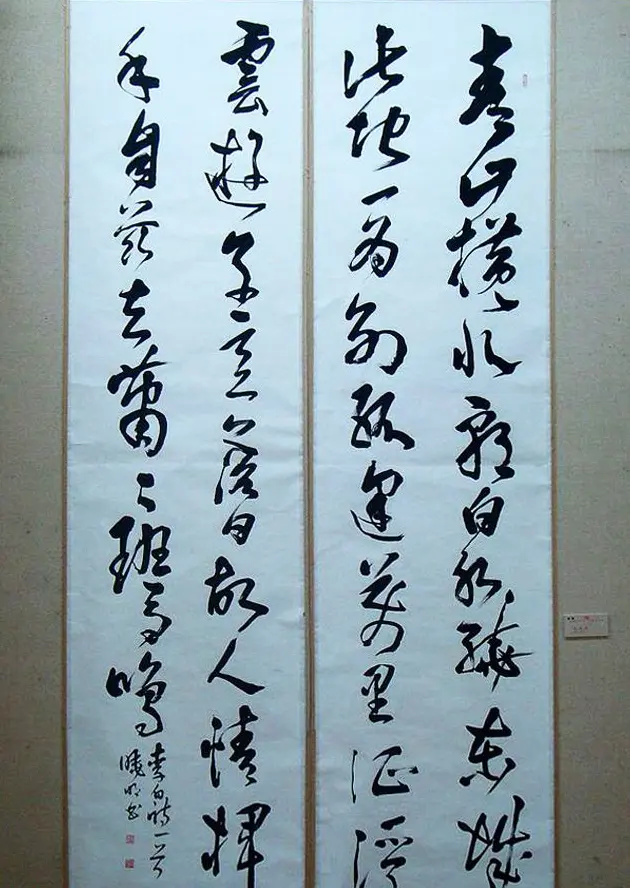 青山橫北郭白水繞東城
此地一為別孤蓬萬里征浮
雲遊子意落日故人情揮
手自茲去蕭々班馬鳴
李白詩一首
曉明書